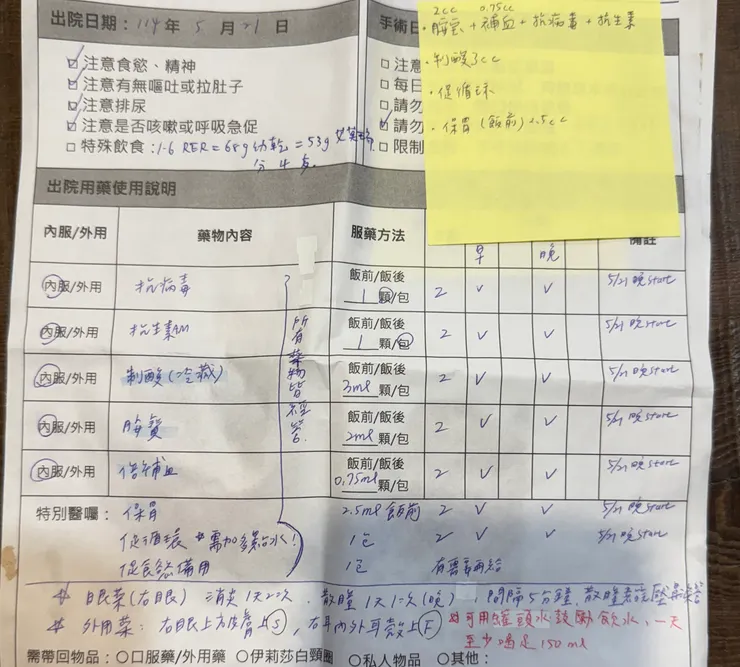 出院日期：114年 5 月 21 日
☑注意食慾、精神
☑注意有無嘔吐或拉肚子
☑注意排尿
☑注意是否咳嗽或呼吸急促
□特殊飲食：1.6 RER = 68g 幼乾 = 53g
分牛
手術日
□注意
□每日
□請勿
☑請勿
□限制
2cc 0.75cc
・胰寶 + 補血 + 抗病毒 + 抗生素
・制酸 3cc
・促循環
・保胃 (飯前) 2.5cc
出院用藥使用說明
內服/外用 藥物內容 服藥方法 早 晚 備註
內服/外用 抗病毒 飯前/飯後 1 顆/包 2 ✓ ✓ 5/21 晚 start
內服/外用 抗生素AM 飯前/飯後 1 顆/包 2 ✓ ✓ 5/21 晚 start
內服/外用 制酸(冷藏) 飯前/飯後 3ml 顆/包 2 ✓ ✓ 5/21 晚 start
內服/外用 胰寶 飯前/飯後 2ml 顆/包 2 ✓ ✓ 5/21 晚 start
內服/外用 倍補血 飯前/飯後 0.75ml 顆/包 2 ✓ ✓ 5/21 晚 start
所有藥物皆經管
特別醫囑： 保胃 2.5ml 飯前 2 ✓ ✓ 5/21 晚 start
促循環 *需加多點水！ 1包 2 ✓ ✓ 5/21 晚 start
促食慾備用 1包 有需要再給
眼藥(右眼) 消炎1天2次，散瞳1天1次(晚)，間隔5分鐘，散瞳
外用藥：右眼上方皮膚上S，右耳內外耳殼上F
※可用罐頭水鼓勵飲水，一天
至少喝足 150 ml
需帶回物品：○口服藥/外用藥 ○伊莉莎白頸圈 ○私人物品 ○其他：